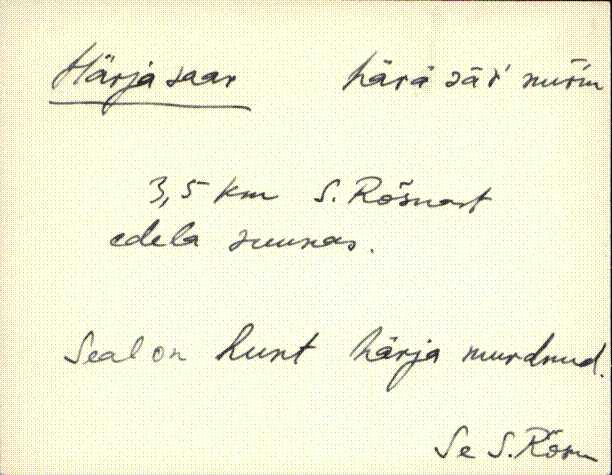 Härjasaar härä säŕ nurm
3,5 km S. Rõsnast
edela suunas.
Seal on hunt härja murdnud.
Se S. Rõsn